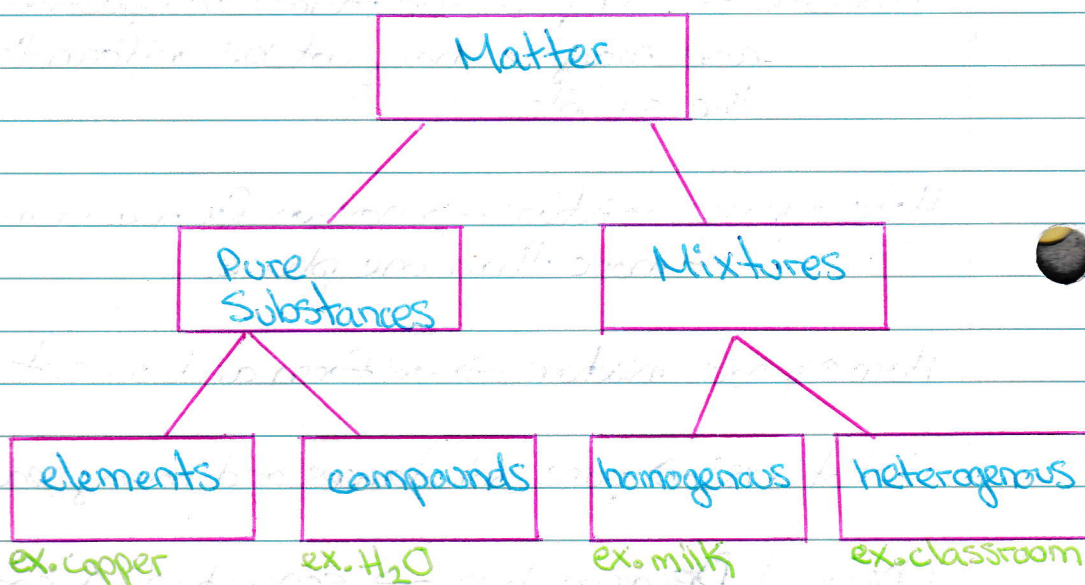 Matter
Pure
Substances
Mixtures
elements
compounds
homogenous
heterogenous
ex. copper
ex. H₂O
ex. milk
ex. classroom